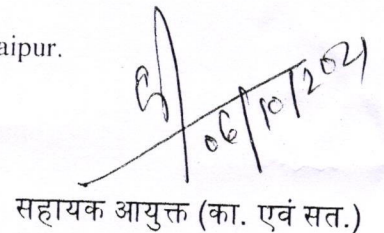 aipur.
06/10/2021
सहायक आयुक्त (का. एवं सत.)